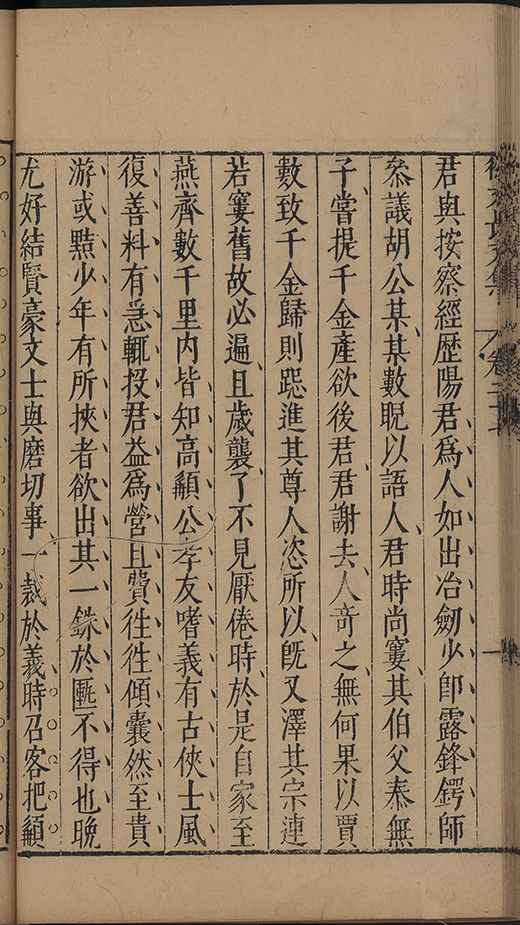 徐文長文集 卷二十七 一
君與按察經歷陽君、爲人如出冶劒少卽露鋒鍔師
叅議胡公某某數睨以語人君時尚窶其伯父泰無
子嘗提千金產欲後君君謝去人奇之無何果以賈
數致千金歸則跽進其尊人恣所以旣又澤其宗連
若窶舊故必遍且歲襲了不見厭倦時於是自家至
燕齊數千里內皆知高顲公孝友嗜義有古俠士風
復善料有急輒投君益爲營且貲徃徃傾囊然至貴
游或黠少年有所挾者欲出其一銖於匭不得也晚
尤好結賢豪文士與磨切事一裁於義時召客把顲